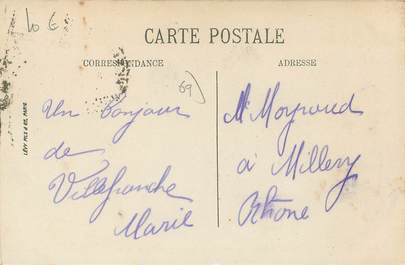 10 €
CARTE POSTALE
CORRESPONDANCE
ADRESSE
69)
LÉVY FILS & Cie, PARIS
Un bonjour
de
Villefranche
Marie
Mr Moyroud
à Millery
Rhône